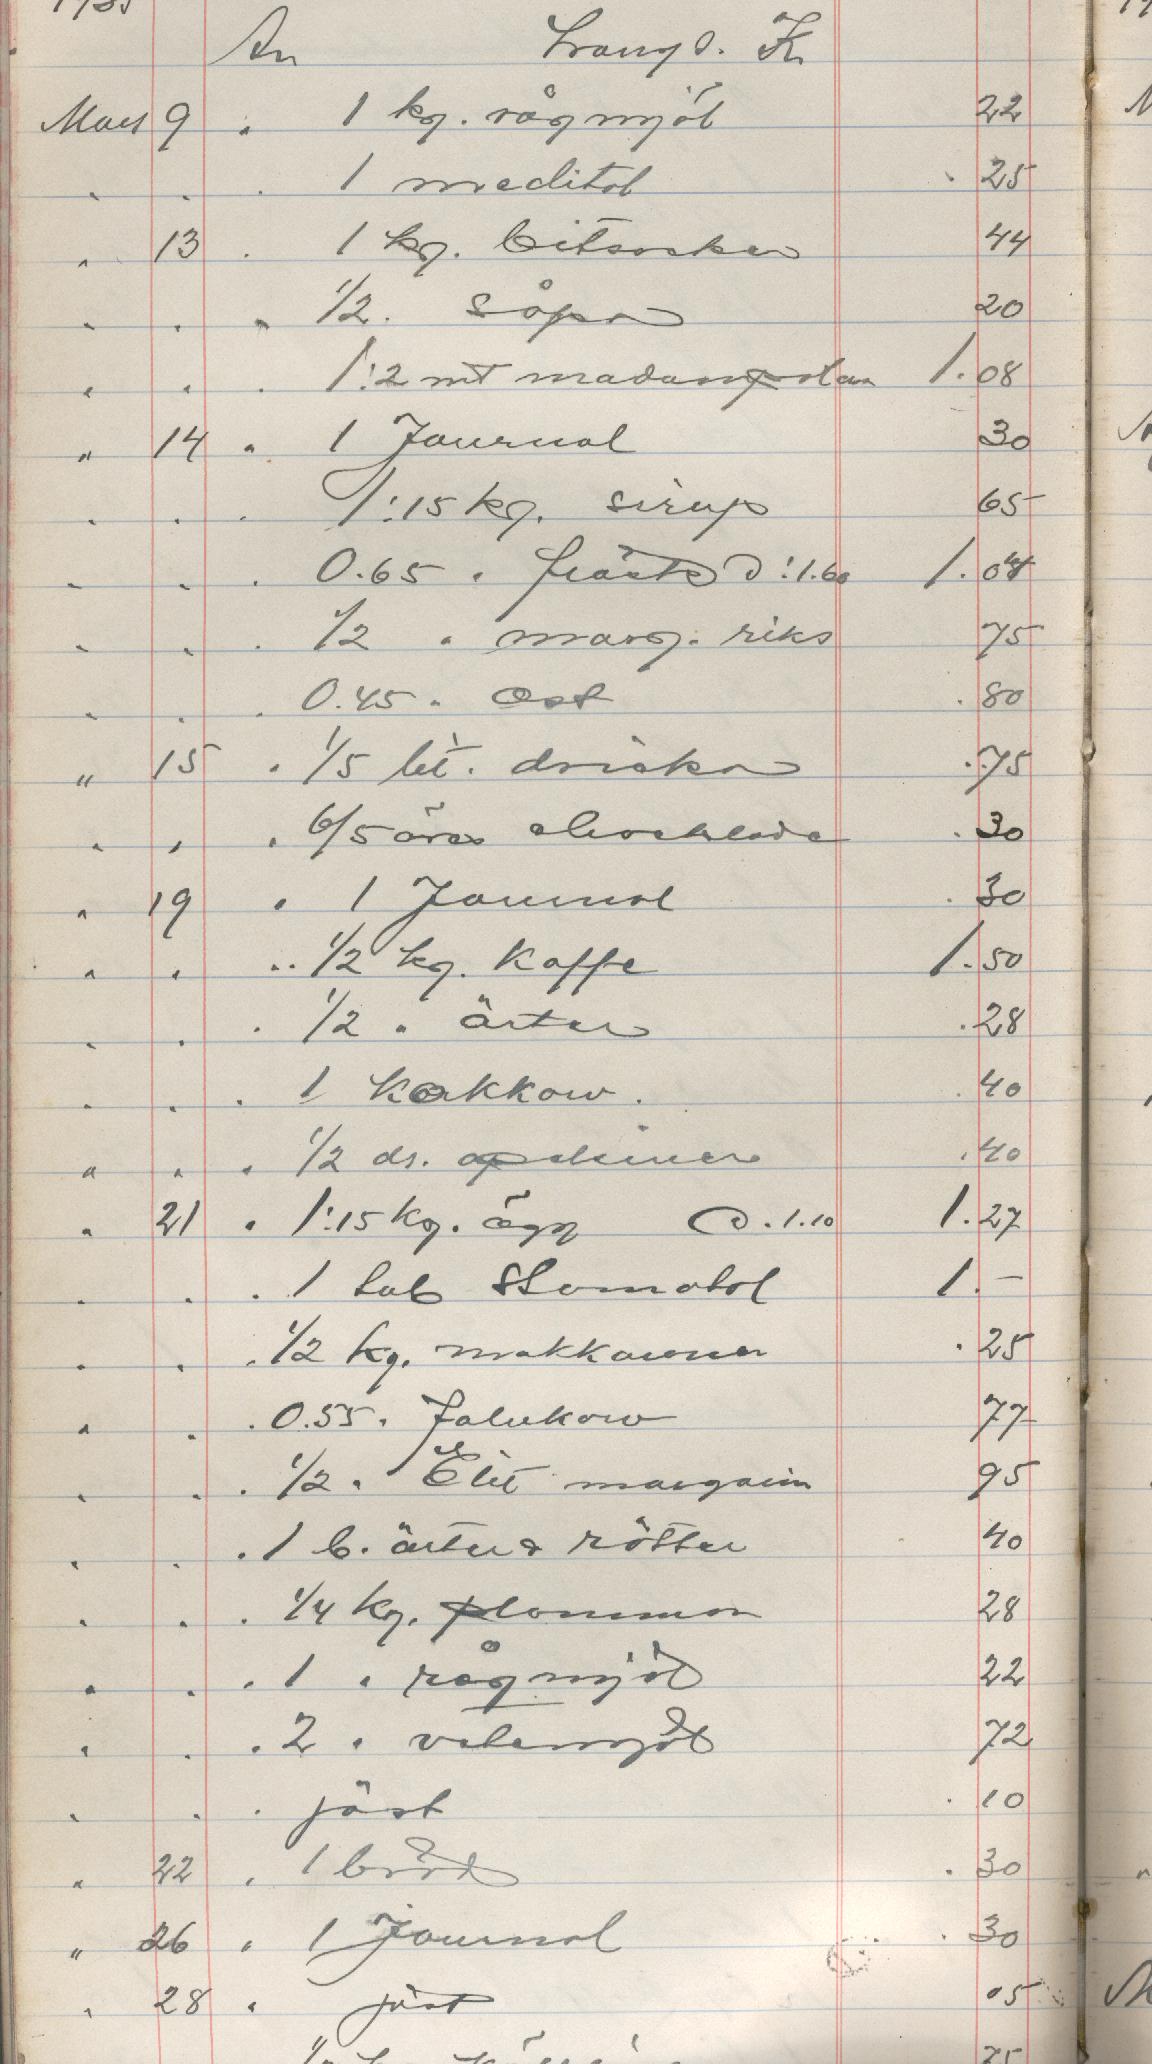 An Transp. Kr
Mars 9 " 1 kg. rågmjöl 22
" " " 1 meditol 25
" 13 " 1 kg. bitsocker 44
" " " 1/2 " såpa 20
" " " 1:2 mt madampolan 1.08
" 14 " 1 Journal 30
" " " 1:15 kg. sirup 65
" " " 0.65 " à:1.60 1.04
" " " 1/2 " marg. riks 75
" " " 0.45 " Ost 80
" 15 " 1/5 lit. dricka 75
" " " 6/5 öres chocklade 30
" 19 " 1 Journal 30
" " " 1/2 kg. Kaffe 1.50
" " " 1/2 " ärter 28
" " " 1 kakkow. 40
" " " 1/2 ds. apelsiner 40
" 21 " 1:15 kg. ägg à.1.10 1.27
" " " 1 tub Stomatol 1.—
" " " 1/2 kg. makkaroner 25
" " " 0.55 " Falukorv 77
" " " 1/2 " Elit margarin 95
" " " 1 b. ärter & rötter 40
" " " 1/4 kg. plommon 28
" " " 1 " rågmjöl 22
" " " 2 " vetemjöl 72
" " " jäst 10
" 22 " 1 bröd 30
" 26 " 1 Journal 30
" 28 " jäst 05